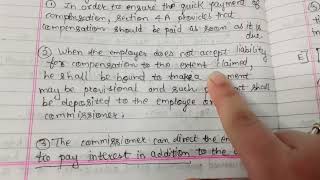 ① In order to ensure the quick payment of
compensation, section 4A provides that
compensation should be paid as soon as it is
due.
② When the employer does not accept liability
for compensation to the extent claimed,
he shall be bound to make
may be provisional and such shall
be deposited to the employee or
commissioner.
③ The commissioner can direct the
to pay interest in addition to the
E]